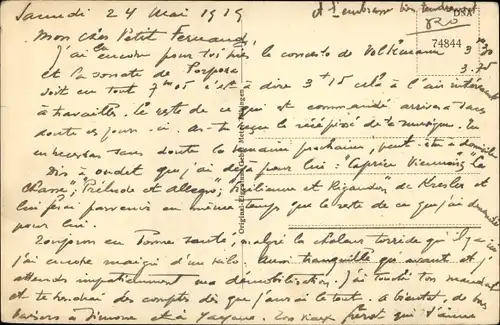 Samedi 24 Mai 1919
et t'embrasse bien tendrement
74844
Mon cher Petit Fernand,
J'ai encore pour toi pris le concerto de Volkmann 3.30
et la sonate de Porpora 3.75
soit en tout 7.05 à dire 3+15 cela à l'air intéressant
à travailler. Le reste de ce que j'ai commandé arrivera sans
doute ces jours-ci. As-tu reçu le récépissé de la musique. Tu
recevras sans doute la semaine prochaine, peut-être à domicile
Dis à ondet que j'ai déjà pour lui "Caprice Viennois", "La
Chasse", "Prélude et Allegro", "Sicilienne et Rigaudon" de Kreisler et
lui ferai parvenir en même temps que le reste de ce que j'ai demandé
pour lui.
Toujours en bonne santé, malgré la chaleur torride qu'il y a ici
j'ai encore maigri d'un kilo. Aussi tranquille qu'avant et j'
attends impatiemment ma démobilisation. J'ai touché ton mandat
et te rendrai des comptes dès que j'aurai le tout. A bientôt, de bons
baisers à Simone et à Ton vieux frérot qui t'aime
Original-Eigentum Gebr. Metz, Tübingen